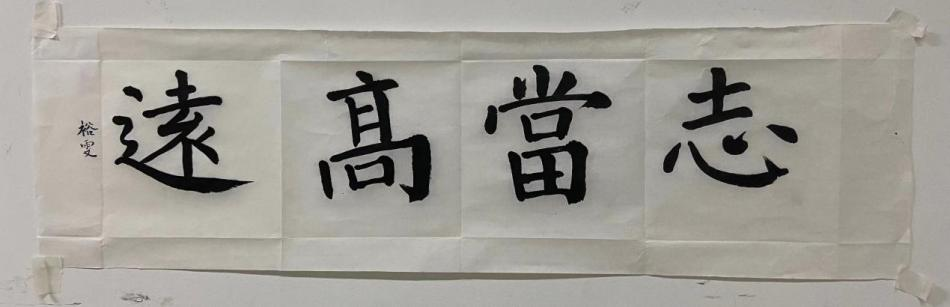 志當髙遠
裕雯